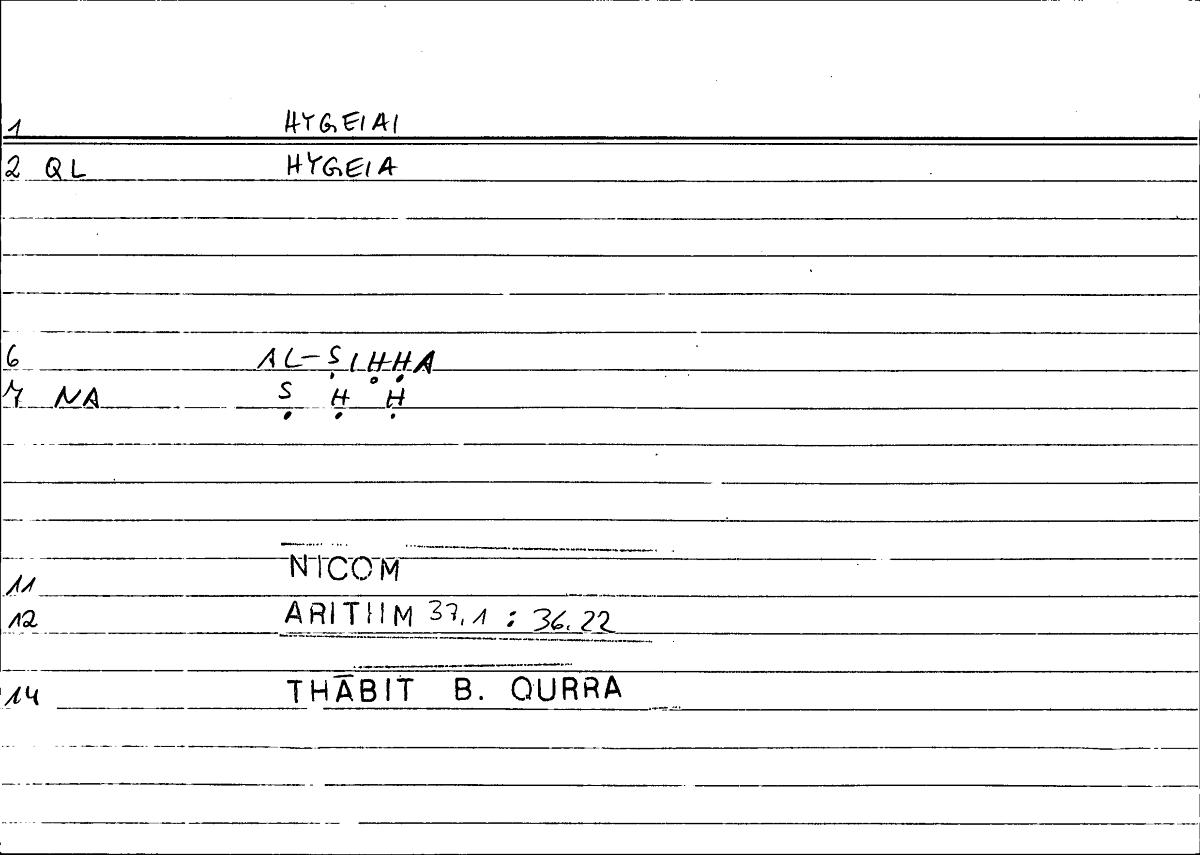 1 HYGEIAI
2 QL HYGEIA
6 AL-ṢIḤḤA
7 NA Ṣ Ḥ Ḥ
11 NICOM
12 ARITIIM 37.1 : 36.22
14 THĀBIT B. QURRA